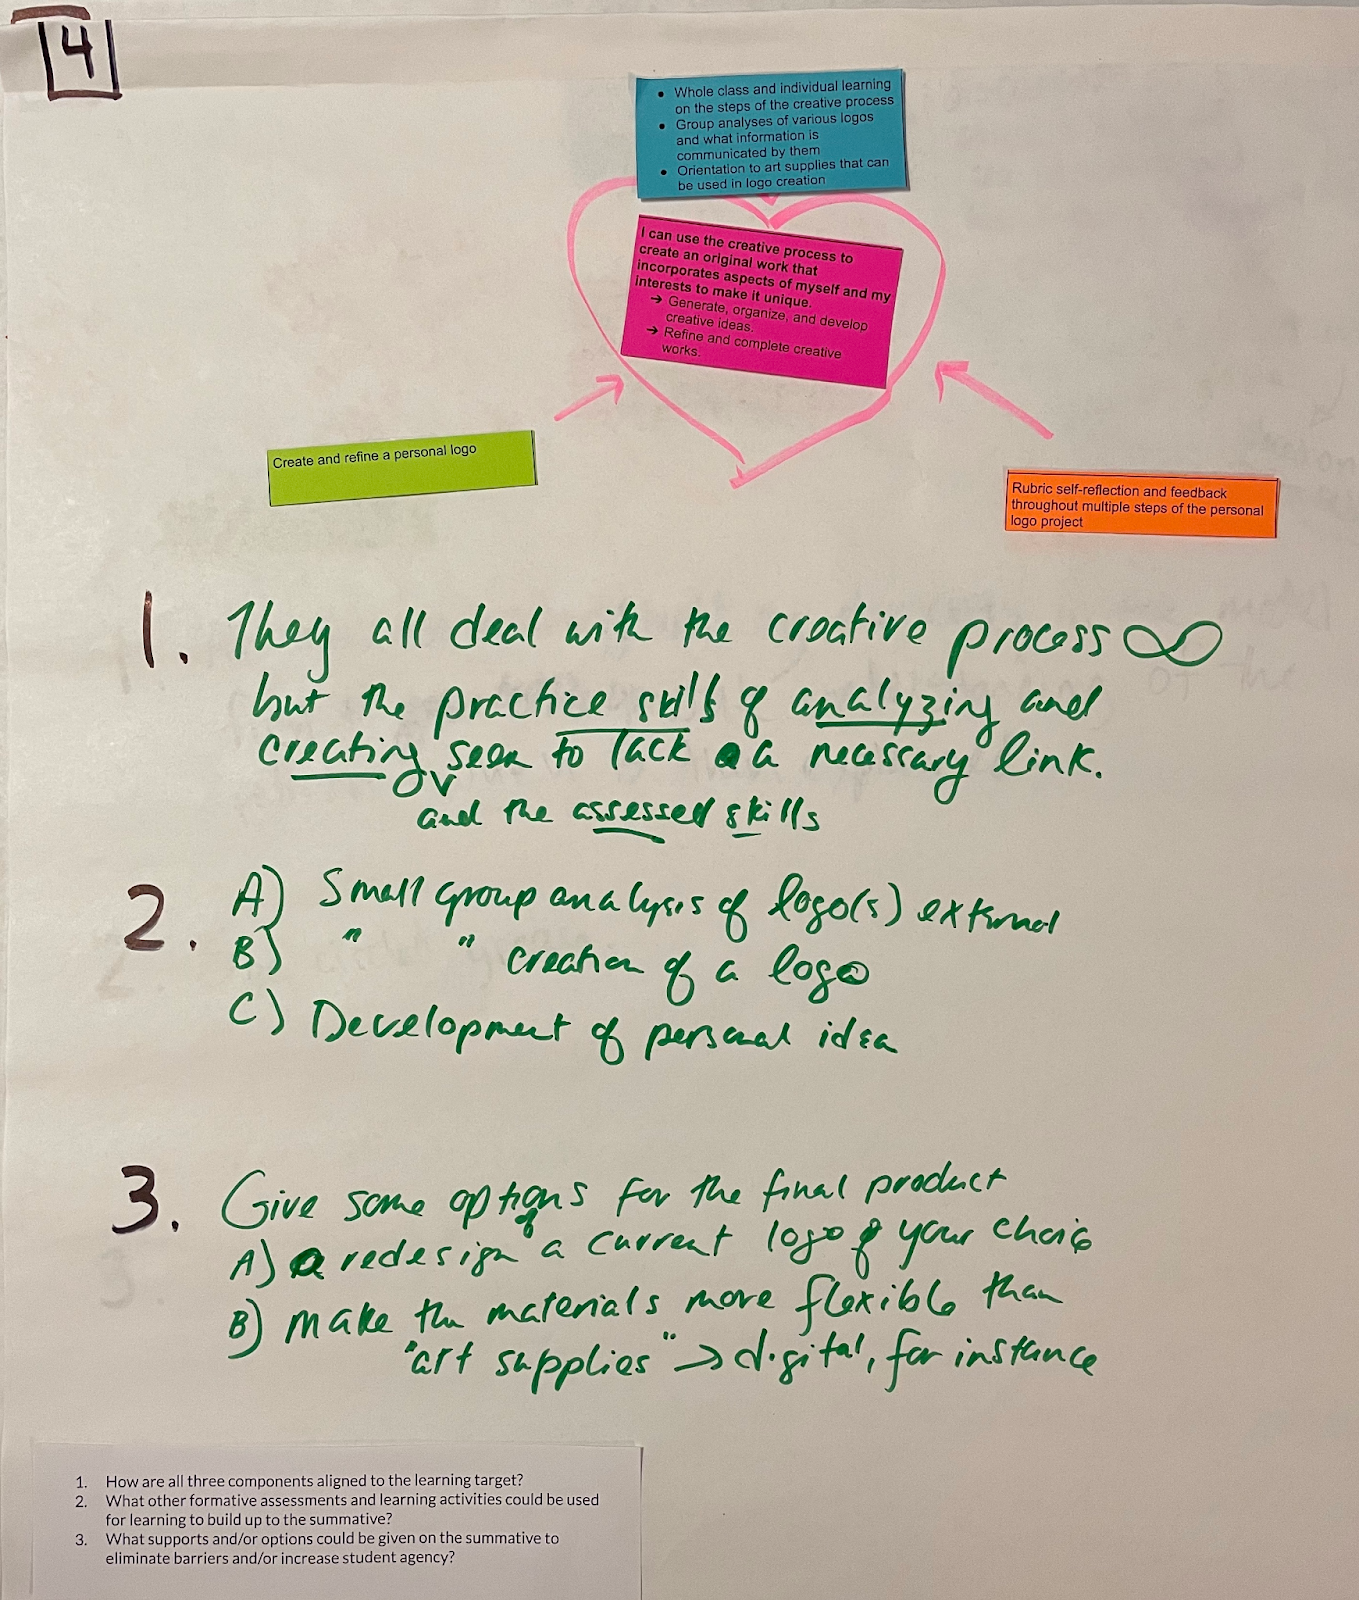 4
• Whole class and individual learning
on the steps of the creative process
• Group analyses of various logos
and what information is
communicated by them
• Orientation to art supplies that can
be used in logo creation
I can use the creative process to
create an original work that
incorporates aspects of myself and my
interests to make it unique.
→ Generate, organize, and develop
creative ideas.
→ Refine and complete creative
works.
Create and refine a personal logo
Rubric self-reflection and feedback
throughout multiple steps of the personal
logo project
1. They all deal with the creative process
but the practice skills of analyzing and
creating seem to lack a necessary link.
and the assessed skills
2. A) Small group analysis of logo(s) external
B) " " creation of a logo
C) Development of personal idea
3. Give some options for the final product
A) redesign a current logo of your choice
B) make the materials more flexible than
"art supplies" → digital, for instance
1. How are all three components aligned to the learning target?
2. What other formative assessments and learning activities could be used
for learning to build up to the summative?
3. What supports and/or options could be given on the summative to
eliminate barriers and/or increase student agency?